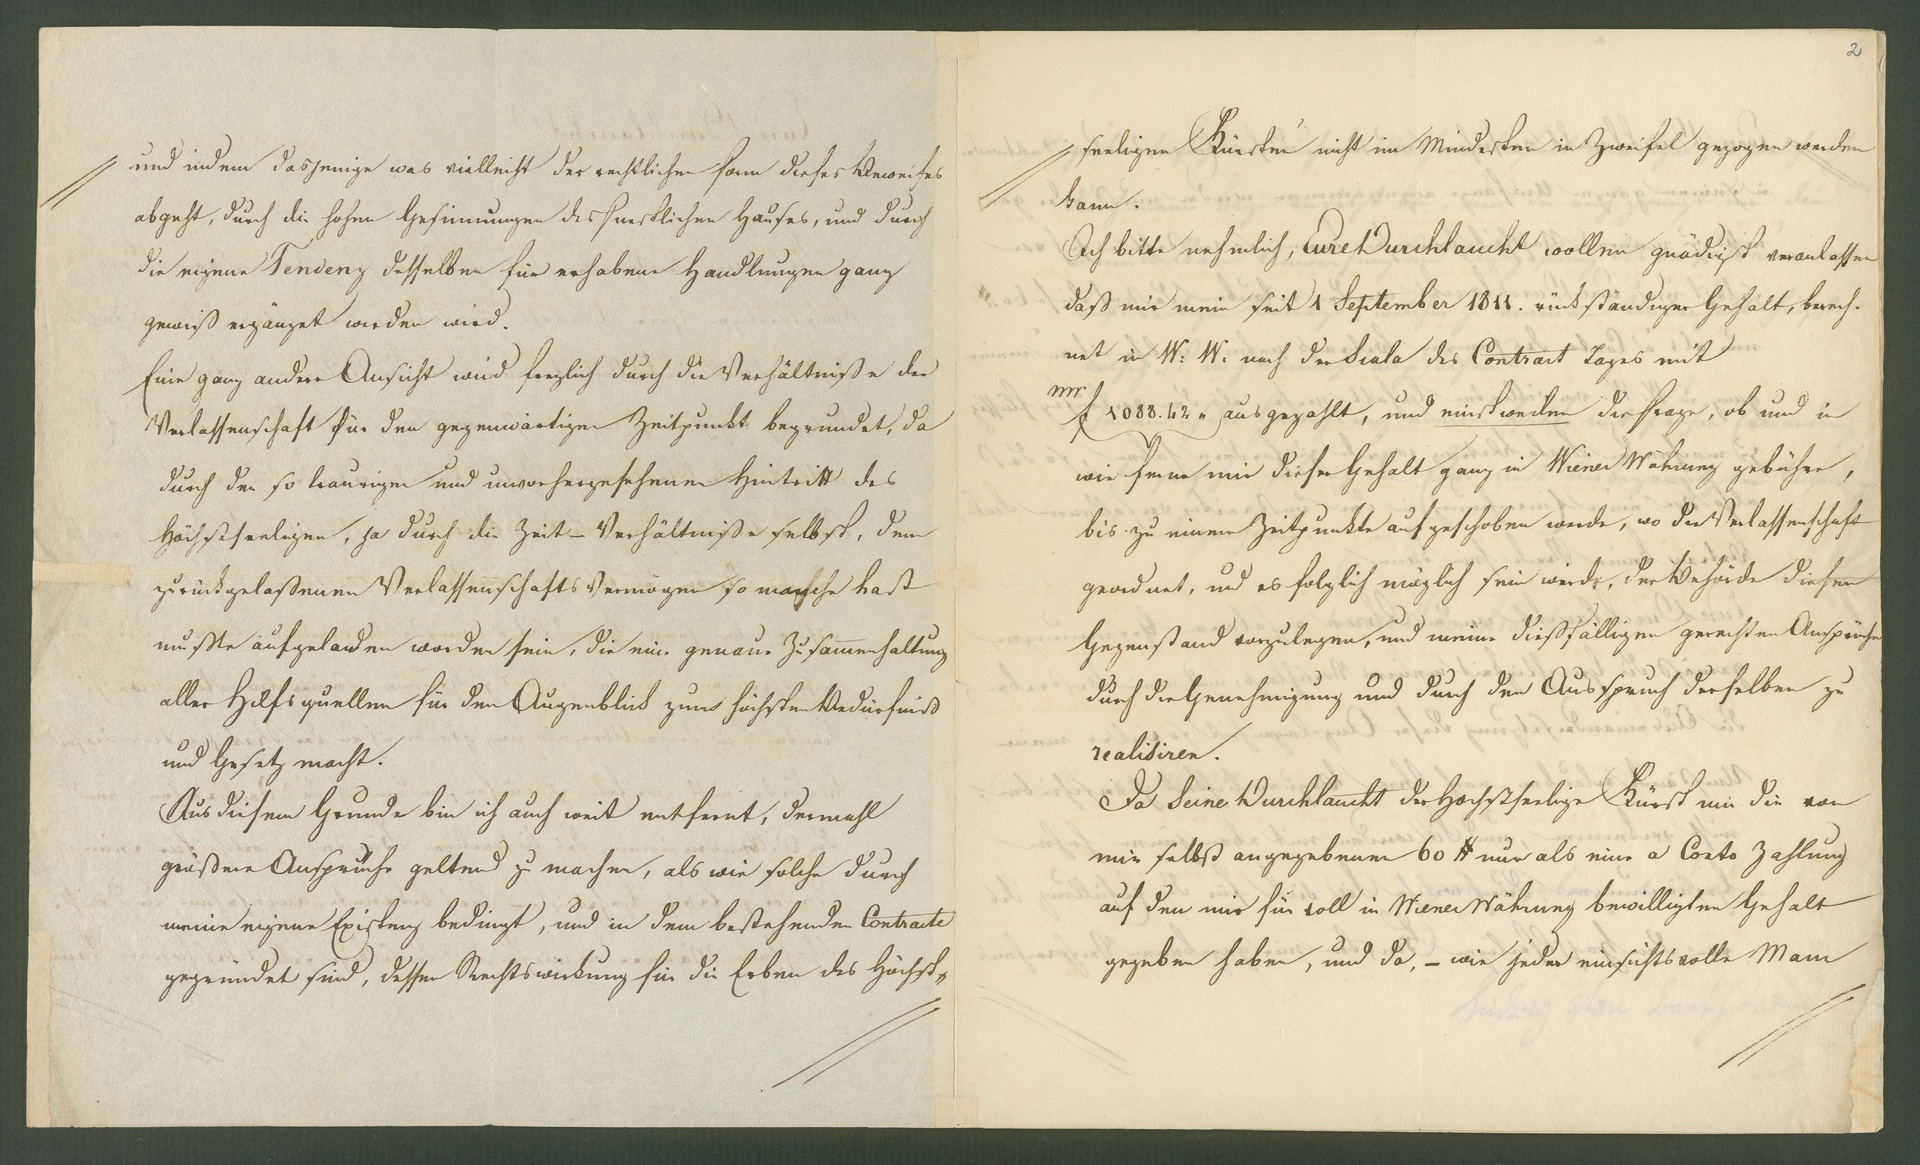 und indem dasjenige was vielleicht der rechtlichen Form dieses Beweises
abgeht, durch die hohen Gesinnungen des fürstlichen Hauses, und durch
die eigene Tendenz desselben für erhabene Handlungen ganz
gewiß ergänzet werden wird.
Eine ganz andere Ansicht wird freylich durch die Verhältniße der
Verlassenschaft für den gegenwärtigen Zeitpunkt begründet, da
durch den so traurigen und unvorhergesehenen Hintritt des
Höchstseeligen, ja durch die Zeit-Verhältniße selbst, dem
zurückgelaßenen Verlassenschafts Vermögen so manche Last
mußte aufgeladen worden sein, die eine genaue Zusammenhaltung
aller Hilfsquellen für den Augenblick zum höchsten Bedürfniß
und Gesetz macht.
Aus diesem Grunde bin ich auch weit entfernt, dermahl
größere Ansprüche geltend zu machen, als wie solche durch
meine eigene Existenz bedingt, und in dem bestehenden Contracte
gegründet sind, dessen Rechtswirkung für die Erben des Höchst-
2
seeligen Fürsten nicht im Mindesten in Zweifel gezogen werden
kann.
Ich bitte nehmlich, Eure Durchlaucht wollen gnädigst veranlassen
daß mir mein seit 1 September 1811. rückständiger Gehalt, berech-
net in W: W. nach der Scala des Contract Tages mit
f 1088.42 " ausgezahlt, und einstweilen die Frage, ob und in
wie ferne mir dieser Gehalt ganz in Wiener Währung gebühre,
bis zu einem Zeitpunkte aufgeschoben werde, wo die Verlassenschaft
geordnet, und es folglich möglich sein wird, der Behörde diesen
Gegenstand vorzulegen, und meine dießfälligen gerechten Ansprüche
durch die Genehmigung und durch den Ausspruch derselben zu
realisiren.
Da Seine Durchlaucht der Höchstseelige Fürst mir die von
mir selbst angegebenen 60 # nur als eine a Conto Zahlung
auf den mir für voll in Wiener Währung bewilligten Gehalt
gegeben haben, und da, – wie jeder einsichtsvolle Mann